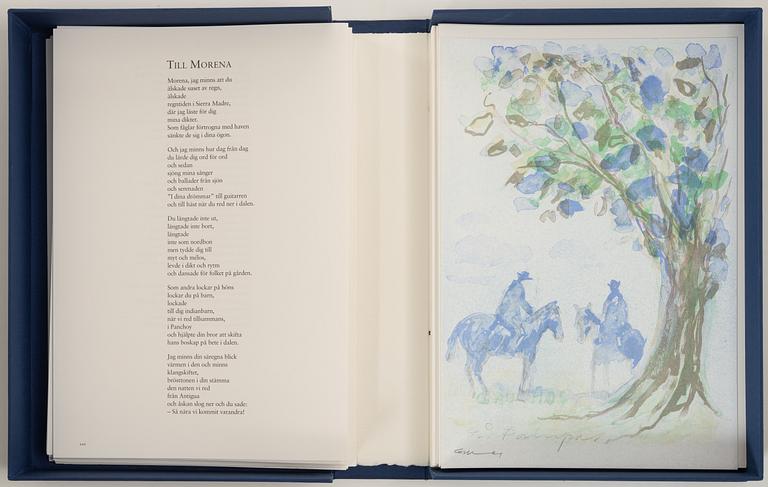 TILL MORENA
Morena, jag minns att du
älskade suset av regn,
älskade
regntiden i Sierra Madre,
där jag läste för dig
mina dikter.
Som fåglar förtrogna med haven
sänkte de sig i dina ögon.
Och jag minns hur dag från dag
du lärde dig ord för ord
och sedan
sjöng mina sånger
och ballader från sjön
och serenaden
"I dina drömmar" till guitarren
och till häst när du red ner i dalen.
Du längtade inte ut,
längtade inte bort,
längtade
inte som nordbon
men tydde dig till
myt och melos,
levde i dikt och rytm
och dansade för folket på gården.
Som andra lockar på höns
lockar du på barn,
lockade
till dig indianbarn,
när vi red tillsammans,
i Panchoy
och hjälpte din bror att skifta
hans boskap på bete i dalen.
Jag minns din säregna blick
värmen i den och minns
klangskiftet,
brösttonen i din stämma
den natten vi red
från Antigua
och åskan slog ner och du sade:
– Så nära vi kommit varandra!
På Pampas